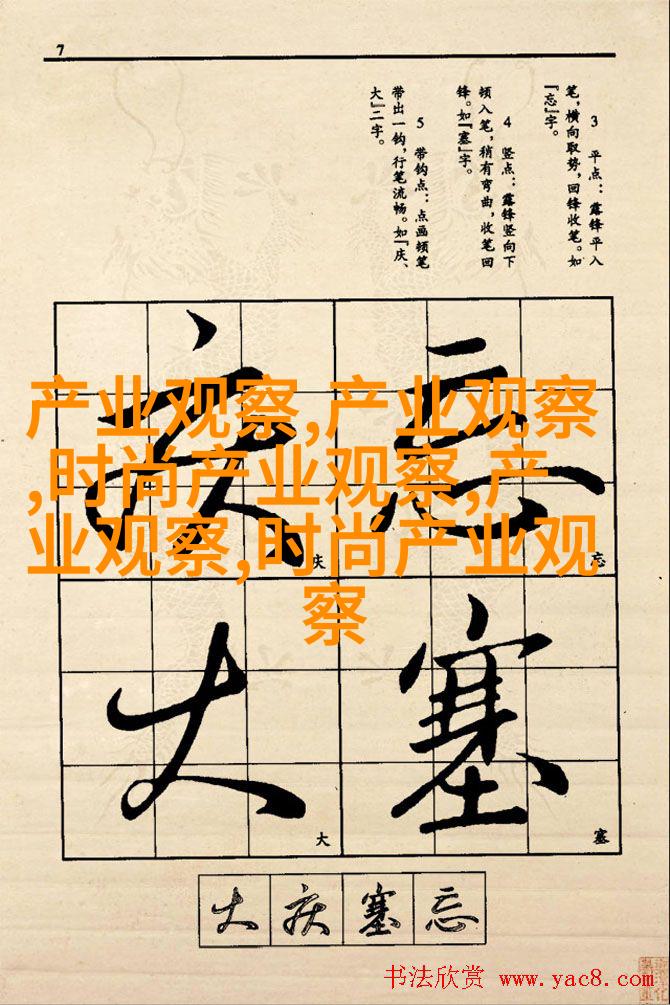 7
3 平点：露锋平入
笔，横向取势，回锋收笔。如
『忘』字。
4 竖点：露锋竖向下
顿入笔，稍有弯曲，收笔回
锋。如『塞』字。
5 带钩点：点画顿笔
带出一钩，行笔流畅。如『庆、
大』二字。
产业观察,产业观察
,时尚产业观察,产
业观察,时尚产业观
察
忘
庆
塞
大
忘
庆
塞
大
大庆塞忘
书法欣赏 www.yac8.com